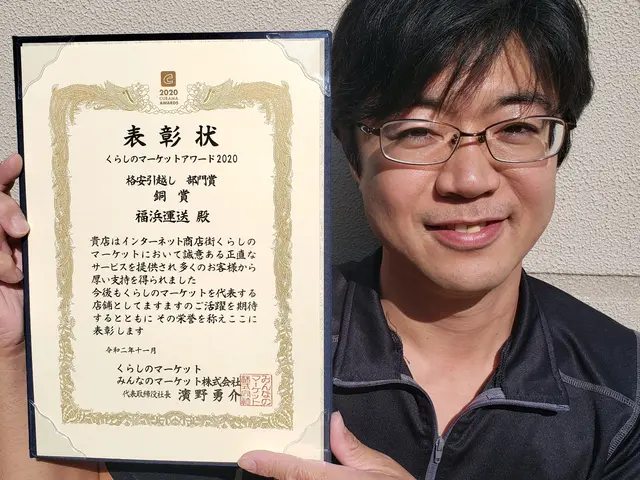 2020
CURAMA
AWARDS
表彰状
くらしのマーケットアワード2020
格安引越し 部門賞
銅賞
福浜運送 殿
貴店はインターネット商店街くらしの
マーケットにおいて誠意ある正直な
サービスを提供され多くのお客様から
厚い支持を得られました
今後もくらしのマーケットを代表する
店舗としてますますのご活躍を期待
するとともに その栄誉を称えここに
表彰します
令和二年十一月
くらしのマーケット
みんなのマーケット株式会社
代表取締役社長 濱野勇介
みんなの
マーケット